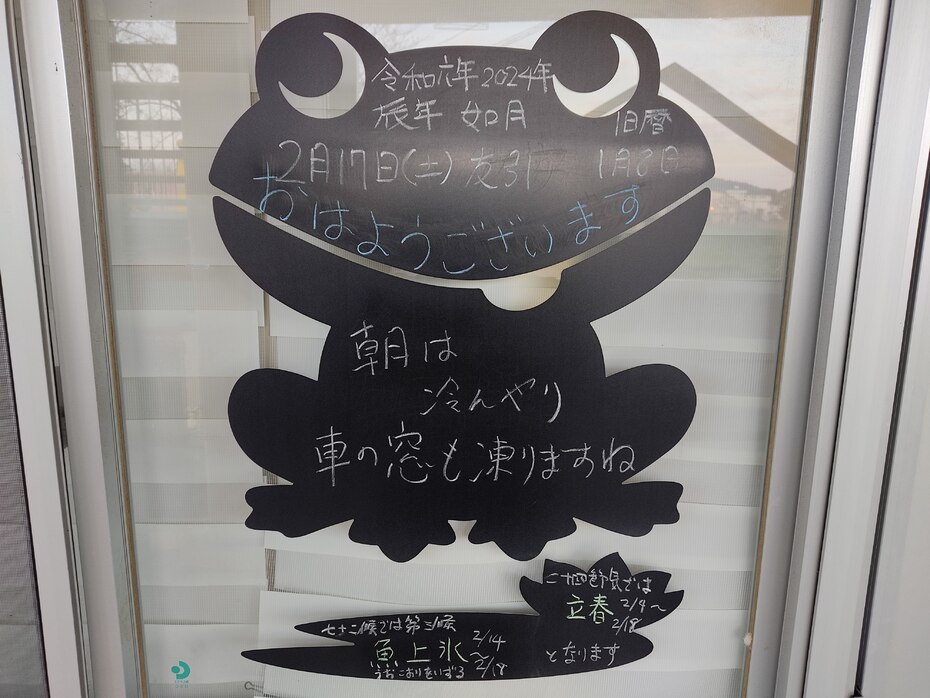 令和六年2024年
辰年 如月
旧暦
2月17日(土) 友引
1月8日
おはようございます
朝は
冷んやり
車の窓も凍りますね
二十四節気では
立春 2/4〜
2/18
となります
七十二候では第三候
魚上氷 2/14
〜2/18
うおこおりをいずる